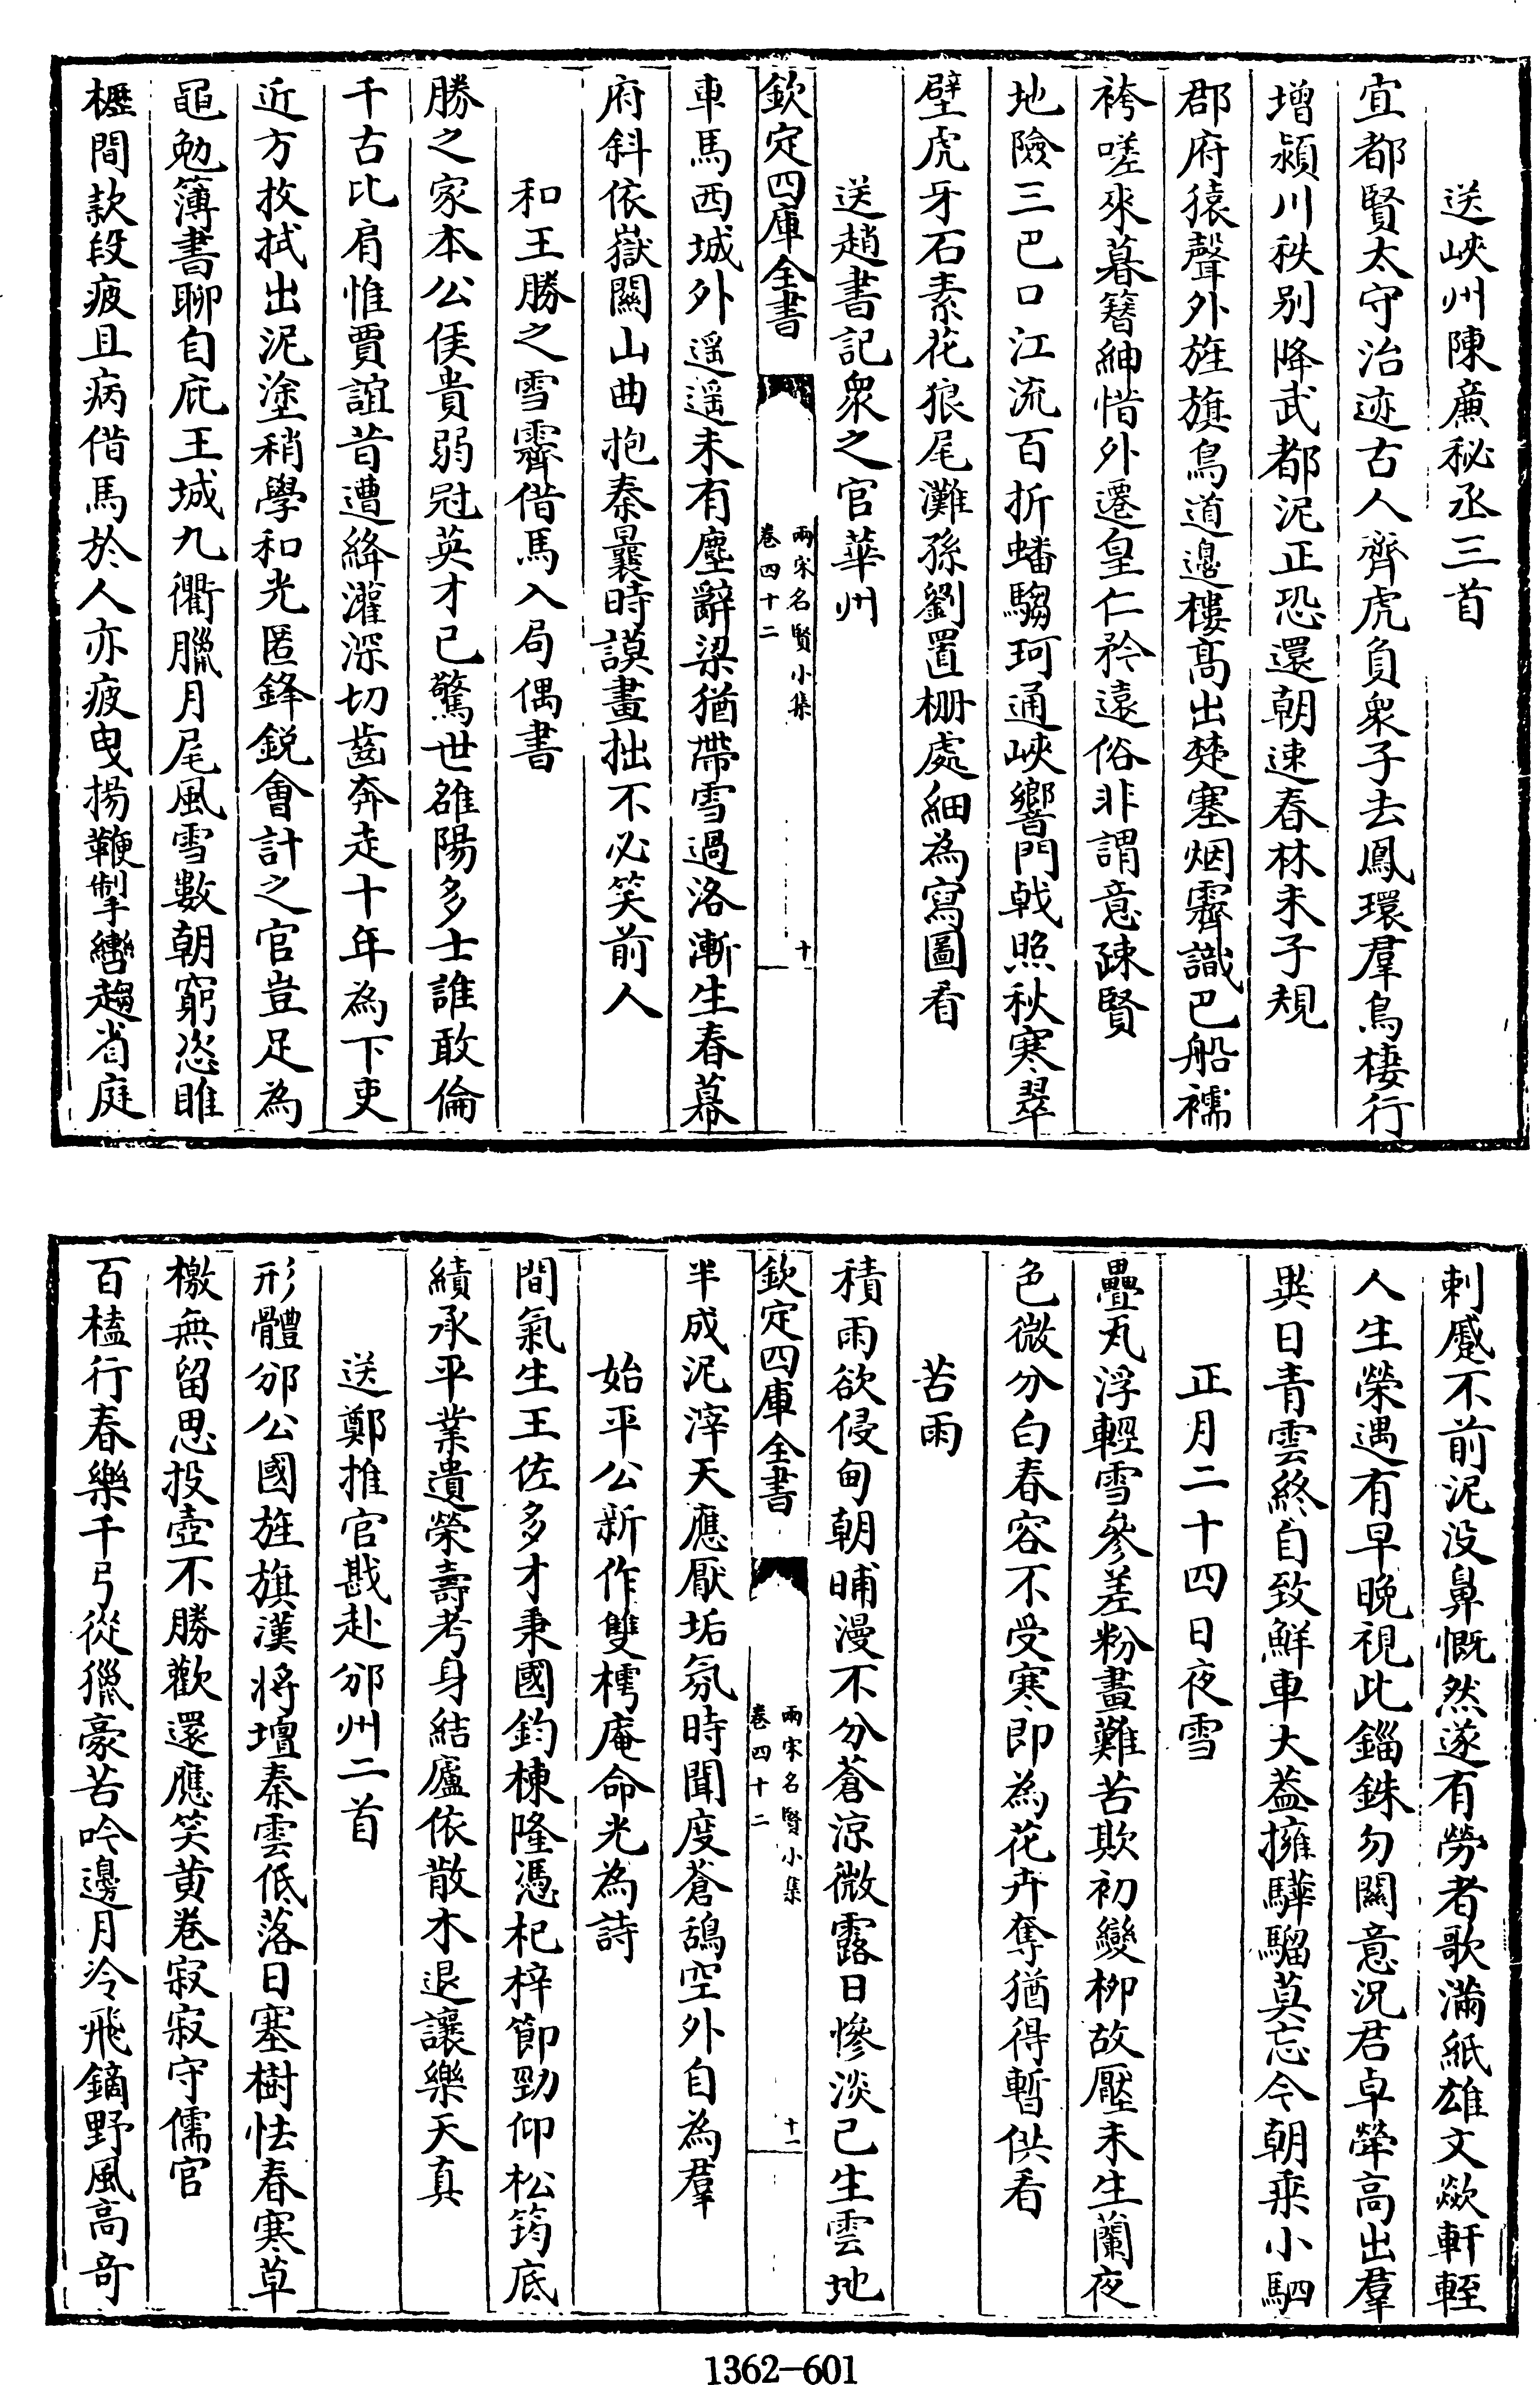 送峽州陳廉秘丞三首
宜都賢太守治迹古人齊虎負衆子去鳳環羣鳥棲行
增潁川秩别降武都泥正恐還朝速春林未子規
郡府猿聲外旌旗鳥道邊樓髙出楚塞烟霽識巴船襦
袴嗟來暮簪紳惜外遷皇仁矜遠俗非謂意疎賢
地險三巴口江流百折蟠騶珂通峽響門㦸照秋寒翠
壁虎牙石素花狼尾灘孫劉置栅處細為寫圖看
送趙書記衆之官華州
欽定四庫全書
兩宋名賢小集
卷四十二
十
車馬西城外遥遥未有塵辭梁猶帶雪過洛漸生春幕
府斜依嶽關山曲抱秦曩時謨畫拙不必笑前人
和王勝之雪霽借馬入局偶書
勝之家本公侯貴弱冠英才已驚世雒陽多士誰敢倫
千古比肩惟賈誼昔遭絳灌深切齒奔走十年為下吏
近方抆拭出泥塗稍學和光匿鋒鋭會計之官豈足為
黽勉簿書聊自庇王城九衢臘月尾風雪數朝窮恣睢
櫪間款段疲且病借馬於人亦疲曳揚鞭掣轡趨省庭
刺蹙不前泥没鼻慨然遂有勞者歌滿紙雄文歘軒輊
人生榮遇有早晚視此錙銖勿關意況君卓犖高出羣
異日青雲終自致鮮車大葢擁驊騮莫忘今朝乘小駟
正月二十四日夜雪
疊瓦浮輕雪參差粉畫難苦欺初變柳故壓未生蘭夜
色微分白春容不受寒即為花卉奪猶得暫供看
苦雨
積雨欲侵甸朝晡漫不分蒼涼微露日慘淡已生雲地
欽定四庫全書
兩宋名賢小集
卷四十二
十一
半成泥滓天應厭垢氛時聞度蒼鵠空外自為羣
始平公新作雙㯉庵命光為詩
間氣生王佐多才秉國鈞棟隆憑杞梓節勁仰松筠底
績承平業遺榮壽考身結廬依散木退讓樂天真
送鄭推官戡赴邠州二首
形體邠公國旌旗漢將壇秦雲低落日塞樹怯春寒草
檄無留思投壺不勝歡還應笑黄卷寂寂守儒官
百榼行春樂千弓從獵豪苦吟邊月冷飛鏑野風高竒
1362-601